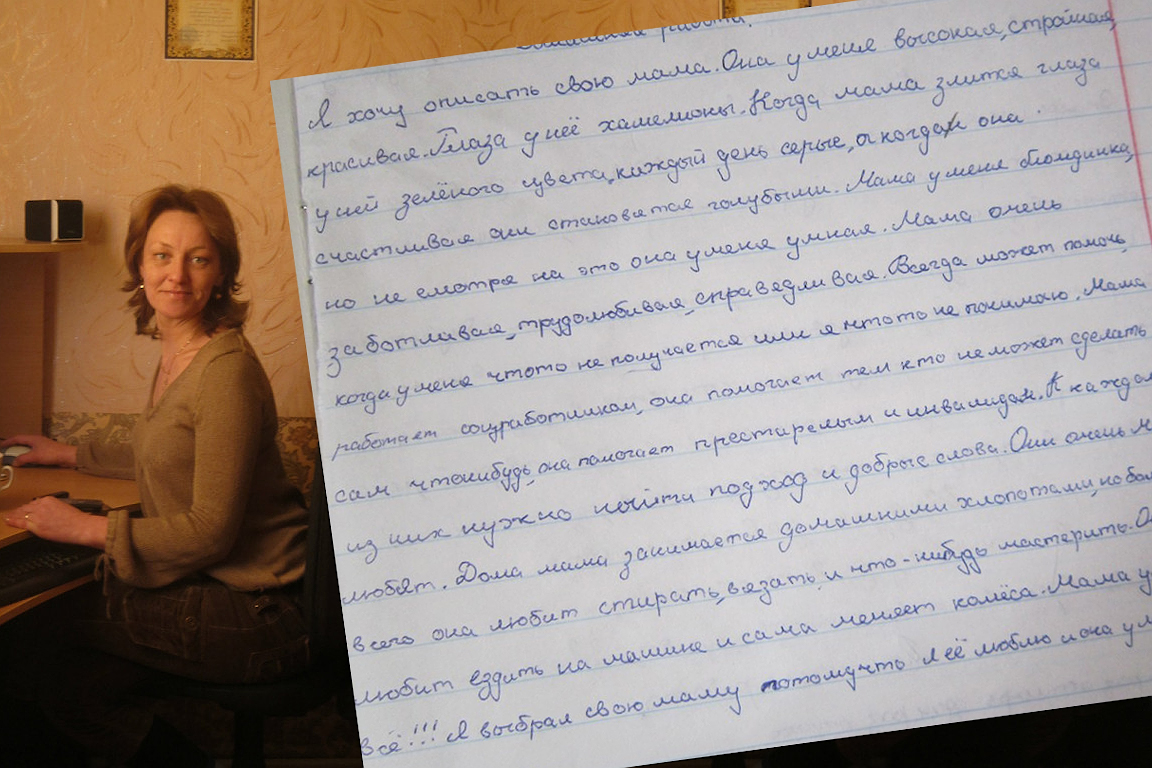 Домашняя работа.
Я хочу описать свою мама. Она у меня высокая, стройная,
красивая. Глаза у неё хамелионы. Когда мама злится глаза
у ней зелёного цвета, каждый день серые, а когда она
счастливая они становятся голубыми. Мама у меня блондинка,
но не смотря на это она у меня умная. Мама очень
заботливая, трудолюбивая, справедливая. Всегда может помочь,
когда у меня чтото не получается или я чтото не понимаю. Мама
работает соцработником, она помогает тем кто не может сделать
сам чтонибудь, она помогает престарелым и инвалидам. К каждом
из них нужно найти подход и добрые слова. Они очень
любят. Дома мама занимается домашними хлопотами, но бол
всего она любит стирать, вязать, и что-нибудь мастерить. О
любит ездить на машине и сама меняет колёса. Мама у
Всё!!! Я выбрал свою маму потомучто я её люблю и она у м